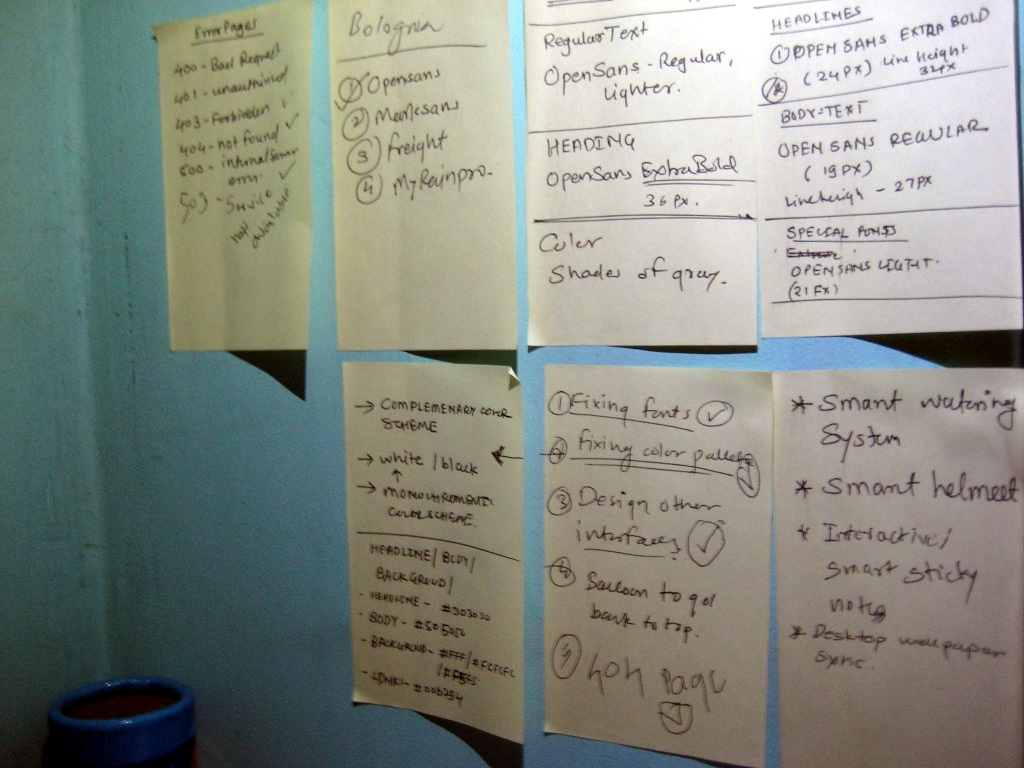 Error Pages
400 - Bad Request
401 - unauthorized
403 - Forbidden
404 - not found ✓
500 - internal Server
error. ✓
503 - Service
not
available
Bologna
① Opensans
②
③ freight
④ MyRainpro.
Regular Text
OpenSans - Regular,
Lighter.
HEADING
OpenSans ExtraBold
36 px.
Color
Shades of gray.
HEADLINES
① OPEN SANS EXTRA BOLD
(24PX) Line Height
32px
BODY-TEXT
OPEN SANS REGULAR
(19PX)
Lineheigh - 27PX
SPECIAL FONTS
OPENSANS LIGHT.
(21PX)
→ COMPLEMENARY COLOR
SCHEME
→ white / black
→ MONOCHROMENTIC
COLORSCHEME.
HEADLINE / BODY /
BACKGROUD /
- HEADLINE - #303030
BODY - #505050
- BACKGROUD - #FFF / #FCFCFC
/
① Fixing fonts ✓
② Fixing color pallets ✓
③ Design other
interfaces ✓
④ Balloon to go
back to top.
⑤ 404 page ✓
* Smart watering
System
* Smart helmeet
* Interactive/
smart sticky
notes
* Desktop wallpaper
sync.